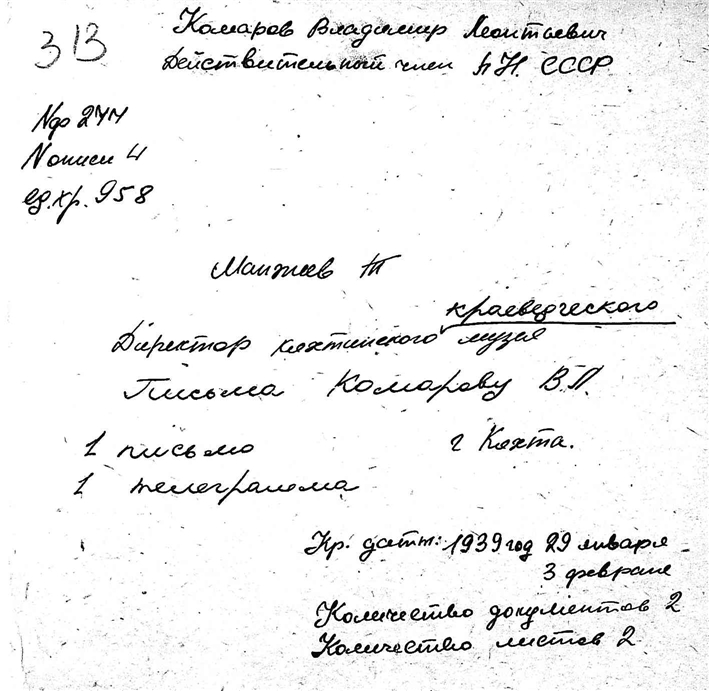 313
Комаров Владимир Леонтьевич
Действительный член АН. СССР
Nф 277
Nописи 4
ед.хр. 958
Манжеев Т
краеведческого
Директор кяхтинского музея
Письма Комарову В.Л.
1 письмо г Кяхта.
1 телеграмма
Кр. даты: 1939 год 29 января -
3 февраля
Количество документов 2
Количество листов 2.